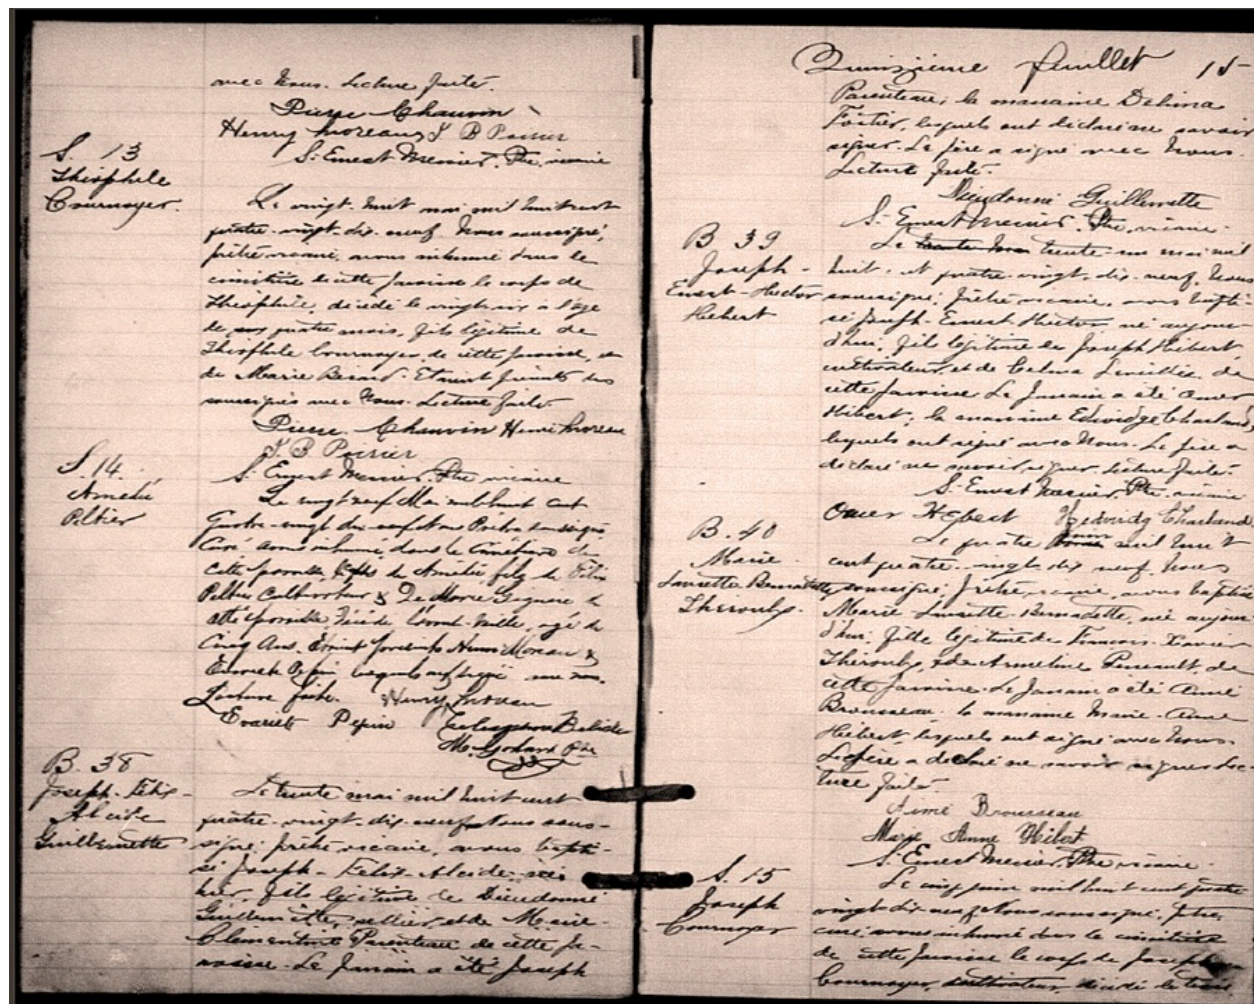 avec Nous. Lecture faite.
Pierre Chauvin
Henry Moreau J B Poirier
S. Ernest Mercier. Ptre, vicaire
S. 13
Théophile
Cournoyer.
Le vingt-huit mai mil huit cent
quatre-vingt-dix-neuf Nous soussigné,
prêtre vicaire, avons inhumé dans le
cimetière de cette paroisse le corps de
Théophile, décédé le vingt-six à l'âge
de quatre mois, fils légitime de
Théophile Cournoyer, de cette paroisse, et
de Marie Etaient présents les
soussignés avec Nous. Lecture faite.
Pierre Chauvin Henri Moreau
J. B Poirier
S. Ernest Mercier. Ptre vicaire
S. 14.
Amédé
Peltier
Le vingt neuf Mai mil huit cent
Quatre-vingt dix-neuf Nous Prêtre soussigné
Curé avons inhumé, dans le Cimétière de
cette paroisse, le corps de Amédé, fils de Félix
Peltier Cultivateur & De Marie de
cette paroisse Décédé agé de
Cinq Ans. Etaient présents Henri Moreau &
Evariste Pepin lesquels ont signé avec nous.
Lecture faite. Henry Moreau
Evariste Pepin
Ptre
B. 38
Joseph-Félix-
Alcide
Guillemette
Le trente mai mil huit cent
quatre-vingt-dix-neuf Nous sous-
signé, prêtre vicaire, avons bapti-
sé Joseph-Félix-Alcide né
hier, fils légitime de Dieudonné
Guillemette, sellier, et de Marie-
Clémentine Parenteau de cette pa-
roisse. Le parrain a été Joseph
Quinzième feuillet 15
Parenteau; la marraine Delima
Fortier, lesquels ont déclaré ne savoir
signer. Le père a signé avec Nous.
Lecture faite.
Dieudonné Guillemette
S. Ernest Mercier. Ptre, vicaire.
B 39
Joseph-
Ernest-Hector
Hébert
Le trente-un mai mil
huit-cent quatre-vingt-dix-neuf, Nous
soussigné, prêtre vicaire, avons bapti-
sé Joseph-Ernest Hector né aujour-
d'hui, fils légitime de Joseph Hébert,
cultivateur, et de Celina de
cette paroisse Le parrain a été Omer
Hébert; la marraine Edwidge Charland,
lesquels ont signé avec Nous. Le père a
déclaré ne savoir signer. Lecture faite.
S. Ernest Mercier Ptre, vicaire
Omer Hebert Hedwidg Charland
B. 40
Marie
Laurette Bernadette
Théroux.
Le quatre juin mil huit
cent quatre-vingt-dix neuf, Nous
soussigné, prêtre, vicaire, avons baptisé
Marie Laurette-Bernadette, née aujour-
d'hui, fille légitime de François-Xavier
Théroux, et de Armeline de
cette paroisse. Le parrain a été Aimé
Brousseau la marraine Marie-Anne
Hébert, lesquels ont signé avec Nous.
Le père a déclaré ne savoir signer. Lec-
ture faite.
Aimé Brousseau
Marie Anne Hébert
S. Ernest Mercier. Ptre, vicaire.
S. 15
Joseph
Cournoyer
Le cinq juin mil huit cent quatre
vingt dix neuf Nous soussigné, prêtre
curé avons inhumé dans le cimitière
de cette paroisse le corps de Joseph
Cournoyer, cultivateur, décédé le trois